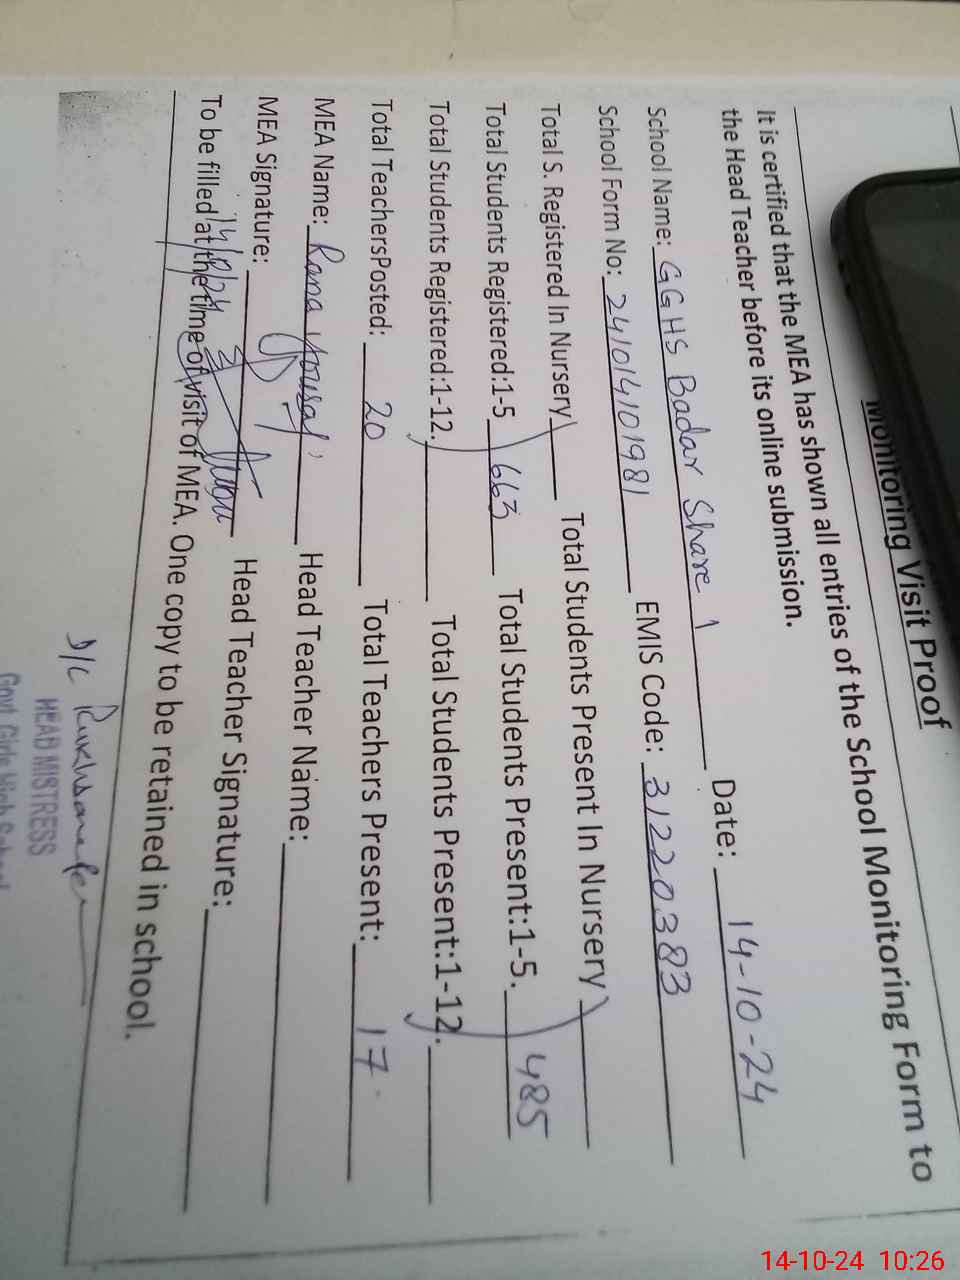 Monitoring Visit Proof
It is certified that the MEA has shown all entries of the School Monitoring Form to
the Head Teacher before its online submission.
School Name: GGHS Badar Share 1 Date: 14-10-24
School Form No: 241014101981 EMIS Code: 31220383
Total S. Registered In Nursery Total Students Present In Nursery
Total Students Registered:1-5 663 Total Students Present:1-5. 485
Total Students Registered:1-12. Total Students Present:1-12.
Total TeachersPosted: 20 Total Teachers Present: 17.
MEA Name: Rana Yousaf Head Teacher Name:
MEA Signature: Head Teacher Signature:
To be filled at the time of visit of MEA. One copy to be retained in school.
D/C
HEAD MISTRESS
Govt. Girls High School
14-10-24 10:26